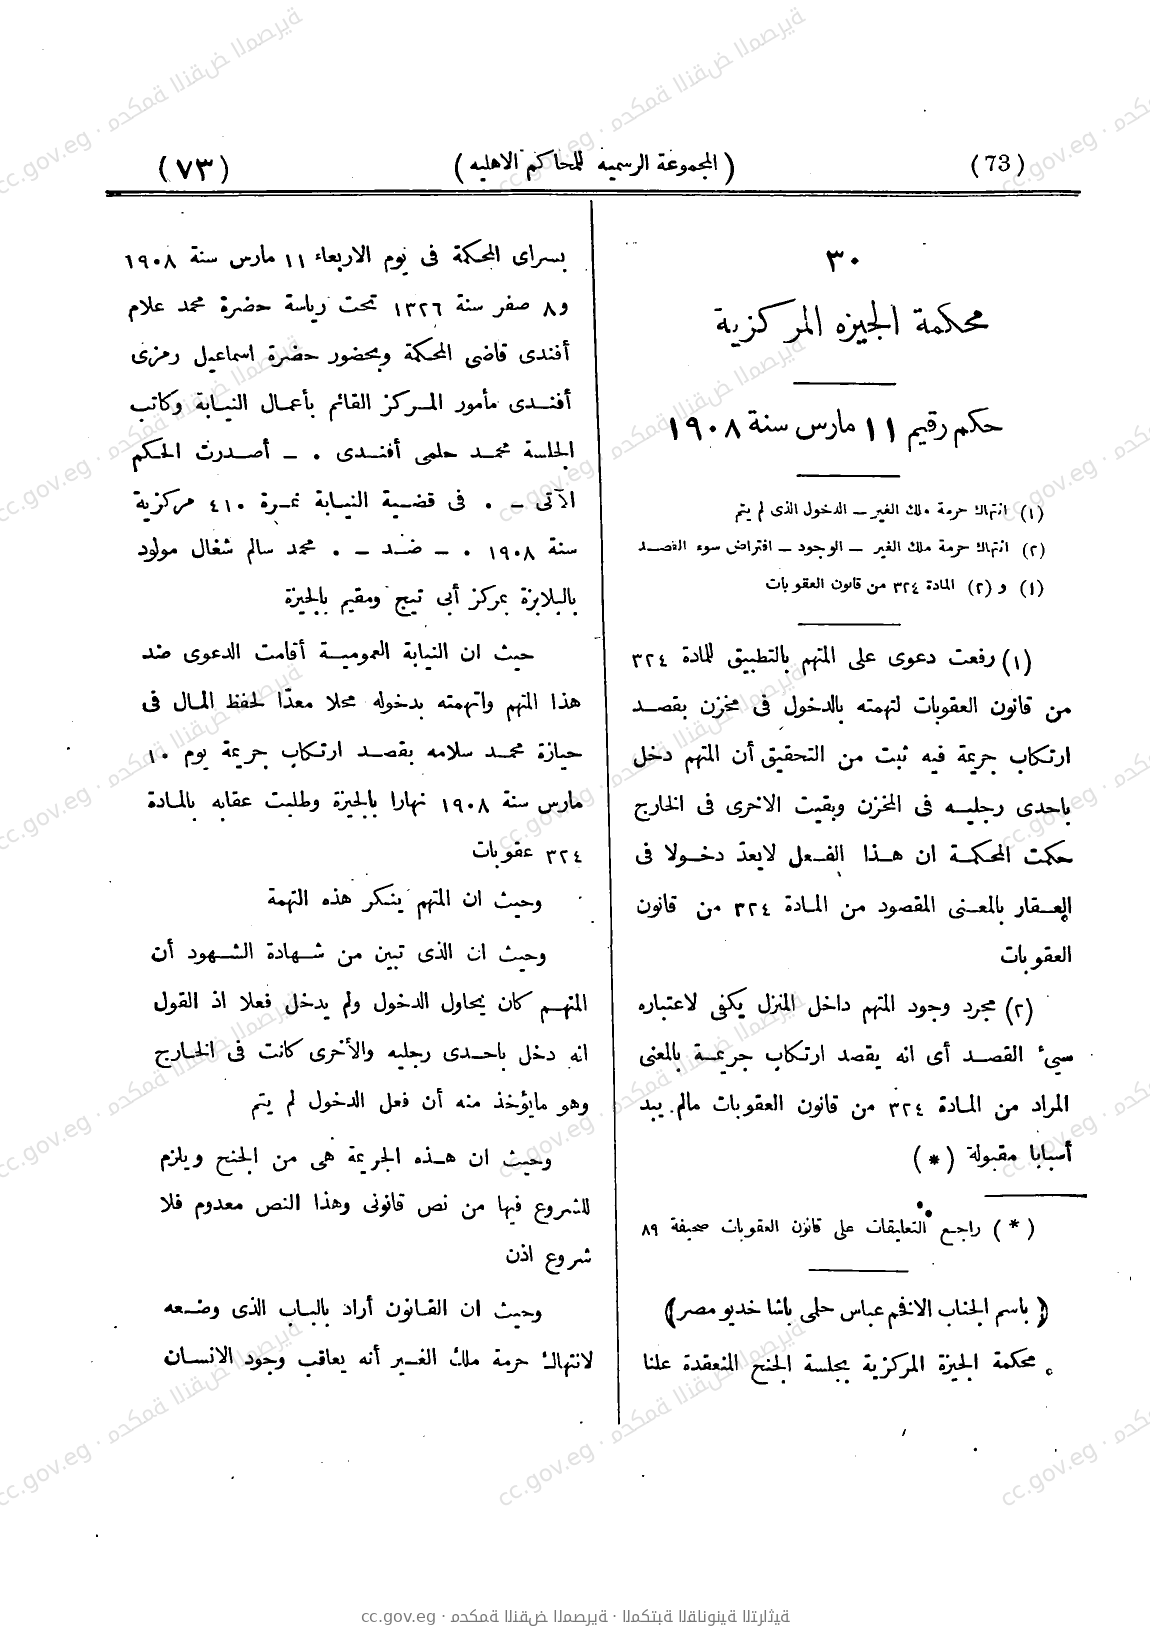 (73) (المجموعة الرسمية للمحاكم الاهليه) (٧٣)
٣٠
محكمة الجيزه المركزية
حكم رقيم ١١ مارس سنة ١٩٠٨
(١) انتهاك حرمة ملك الغير – الدخول الذى لم يتم
(٢) انتهاك حرمة ملك الغير – الوجود – افتراض سوء القصد
(١) و (٢) المادة ٣٢٤ من قانون العقوبات
(١) رفعت دعوى على المتهم بالتطبيق للمادة ٣٢٤
من قانون العقوبات لتهمته بالدخول فى مخزن بقصد
ارتكاب جريمة فيه ثبت من التحقيق أن المتهم دخل
باحدى رجليه فى المخزن وبقيت الاخرى فى الخارج
حكمت المحكمة ان هذا الفعل لايعدّ دخولا فى
العقار بالمعنى المقصود من المادة ٣٢٤ من قانون
العقوبات
(٢) مجرد وجود المتهم داخل المنزل يكفى لاعتباره
سيء القصد أى انه يقصد ارتكاب جريمة بالمعنى
المراد من المادة ٣٢٤ من قانون العقوبات مالم يبد
أسبابا مقبولة (*)
(*) راجع التعليقات على قانون العقوبات صحيفة ٨٩
(باسم الجناب الافخم عباس حلمى باشا خديو مصر)
محكمة الجيزة المركزية بجلسة الجنح المنعقدة علنا
بسراى المحكمة فى يوم الاربعاء ١١ مارس سنة ١٩٠٨
و٨ صفر سنة ١٣٢٦ تحت رياسة حضرة محمد علام
أفندى قاضى المحكمة وبحضور حضرة اسماعيل رمزى
أفندى مأمور المركز القائم بأعمال النيابة وكاتب
الجلسة محمد حلمى أفندى . – أصدرت الحكم
الآتى – . فى قضية النيابة نمرة ٤١٠ مركزية
سنة ١٩٠٨ . – ضد – . محمد سالم شغال مولود
بالبلايزة بمركز أبى تيج ومقيم بالجيزة
حيث ان النيابة العمومية أقامت الدعوى ضد
هذا المتهم واتهمته بدخوله محلا معدّا لحفظ المال فى
حيازة محمد سلامه بقصد ارتكاب جريمة يوم ١٠
مارس سنة ١٩٠٨ نهارا بالجيزة وطلبت عقابه بالمادة
٣٢٤ عقوبات
وحيث ان المتهم ينكر هذه التهمة
وحيث ان الذى تبين من شهادة الشهود أن
المتهم كان يحاول الدخول ولم يدخل فعلا اذ القول
انه دخل باحدى رجليه والأخرى كانت فى الخارج
وهو مايؤخذ منه أن فعل الدخول لم يتم
وحيث ان هذه الجريمة هى من الجنح ويلزم
للشروع فيها من نص قانونى وهذا النص معدوم فلا
شروع اذن
وحيث ان القانون أراد بالباب الذى وضعه
لانتهاك حرمة ملك الغير أنه يعاقب وجود الانسان
cc.gov.eg · محكمة النقض المصرية · المكتبة القانونية التراثية